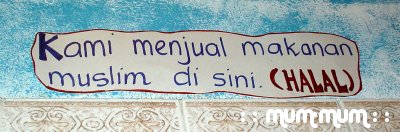 Kami menjual makanan
muslim di sini. (HALAL)
:: mum-mum ::